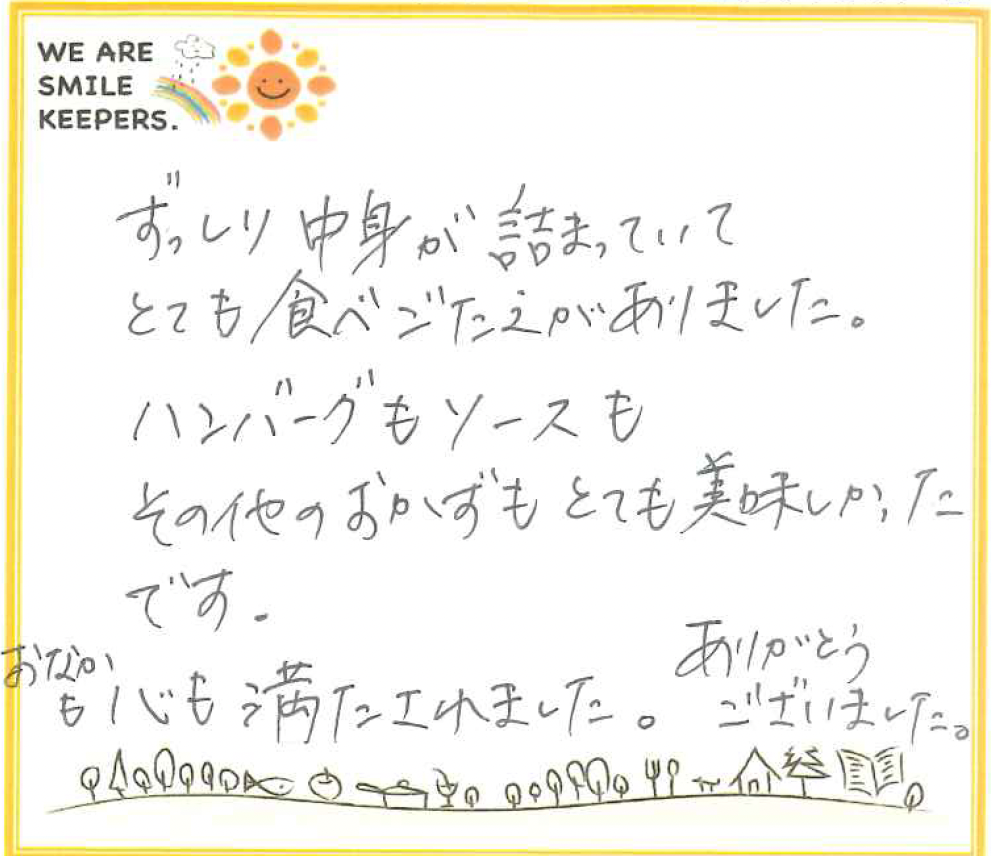 WE ARE
SMILE
KEEPERS.
ずっしり中身が詰まっていて
とても食べごたえがありました。
ハンバーグもソースも
その他のおかずもとても美味しかった
です.
おなか
も心も満たされました。
ありがとう
ございました。